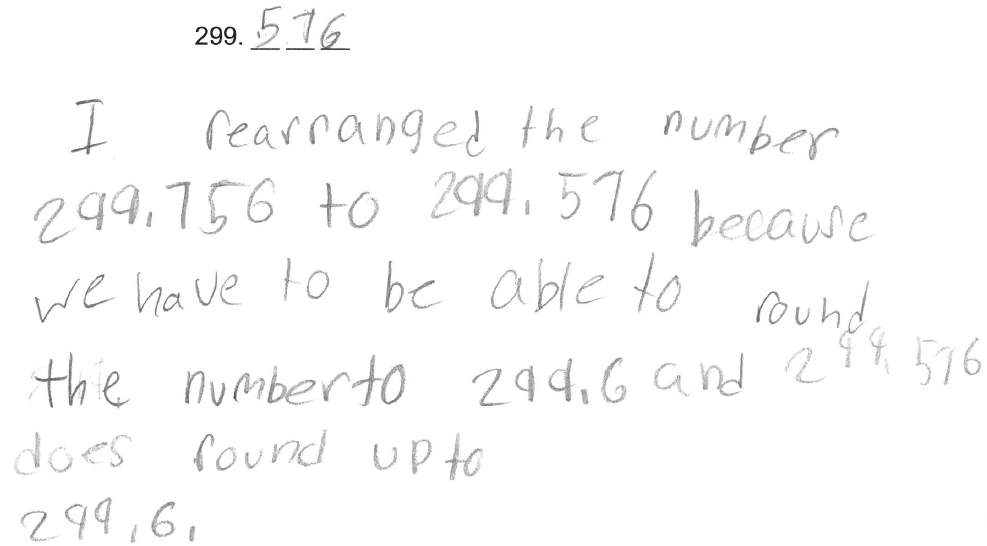 299. 576
I rearranged the number
299.756 to 299.576 because
we have to be able to round
the number to 299.6 and 299.576
does round up to
299.6.